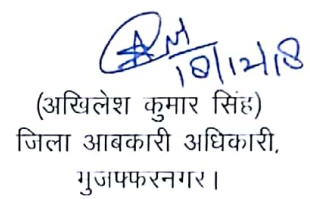 18/12/18
(अखिलेश कुमार सिंह)
जिला आबकारी अधिकारी,
गुजफ्फरनगर।